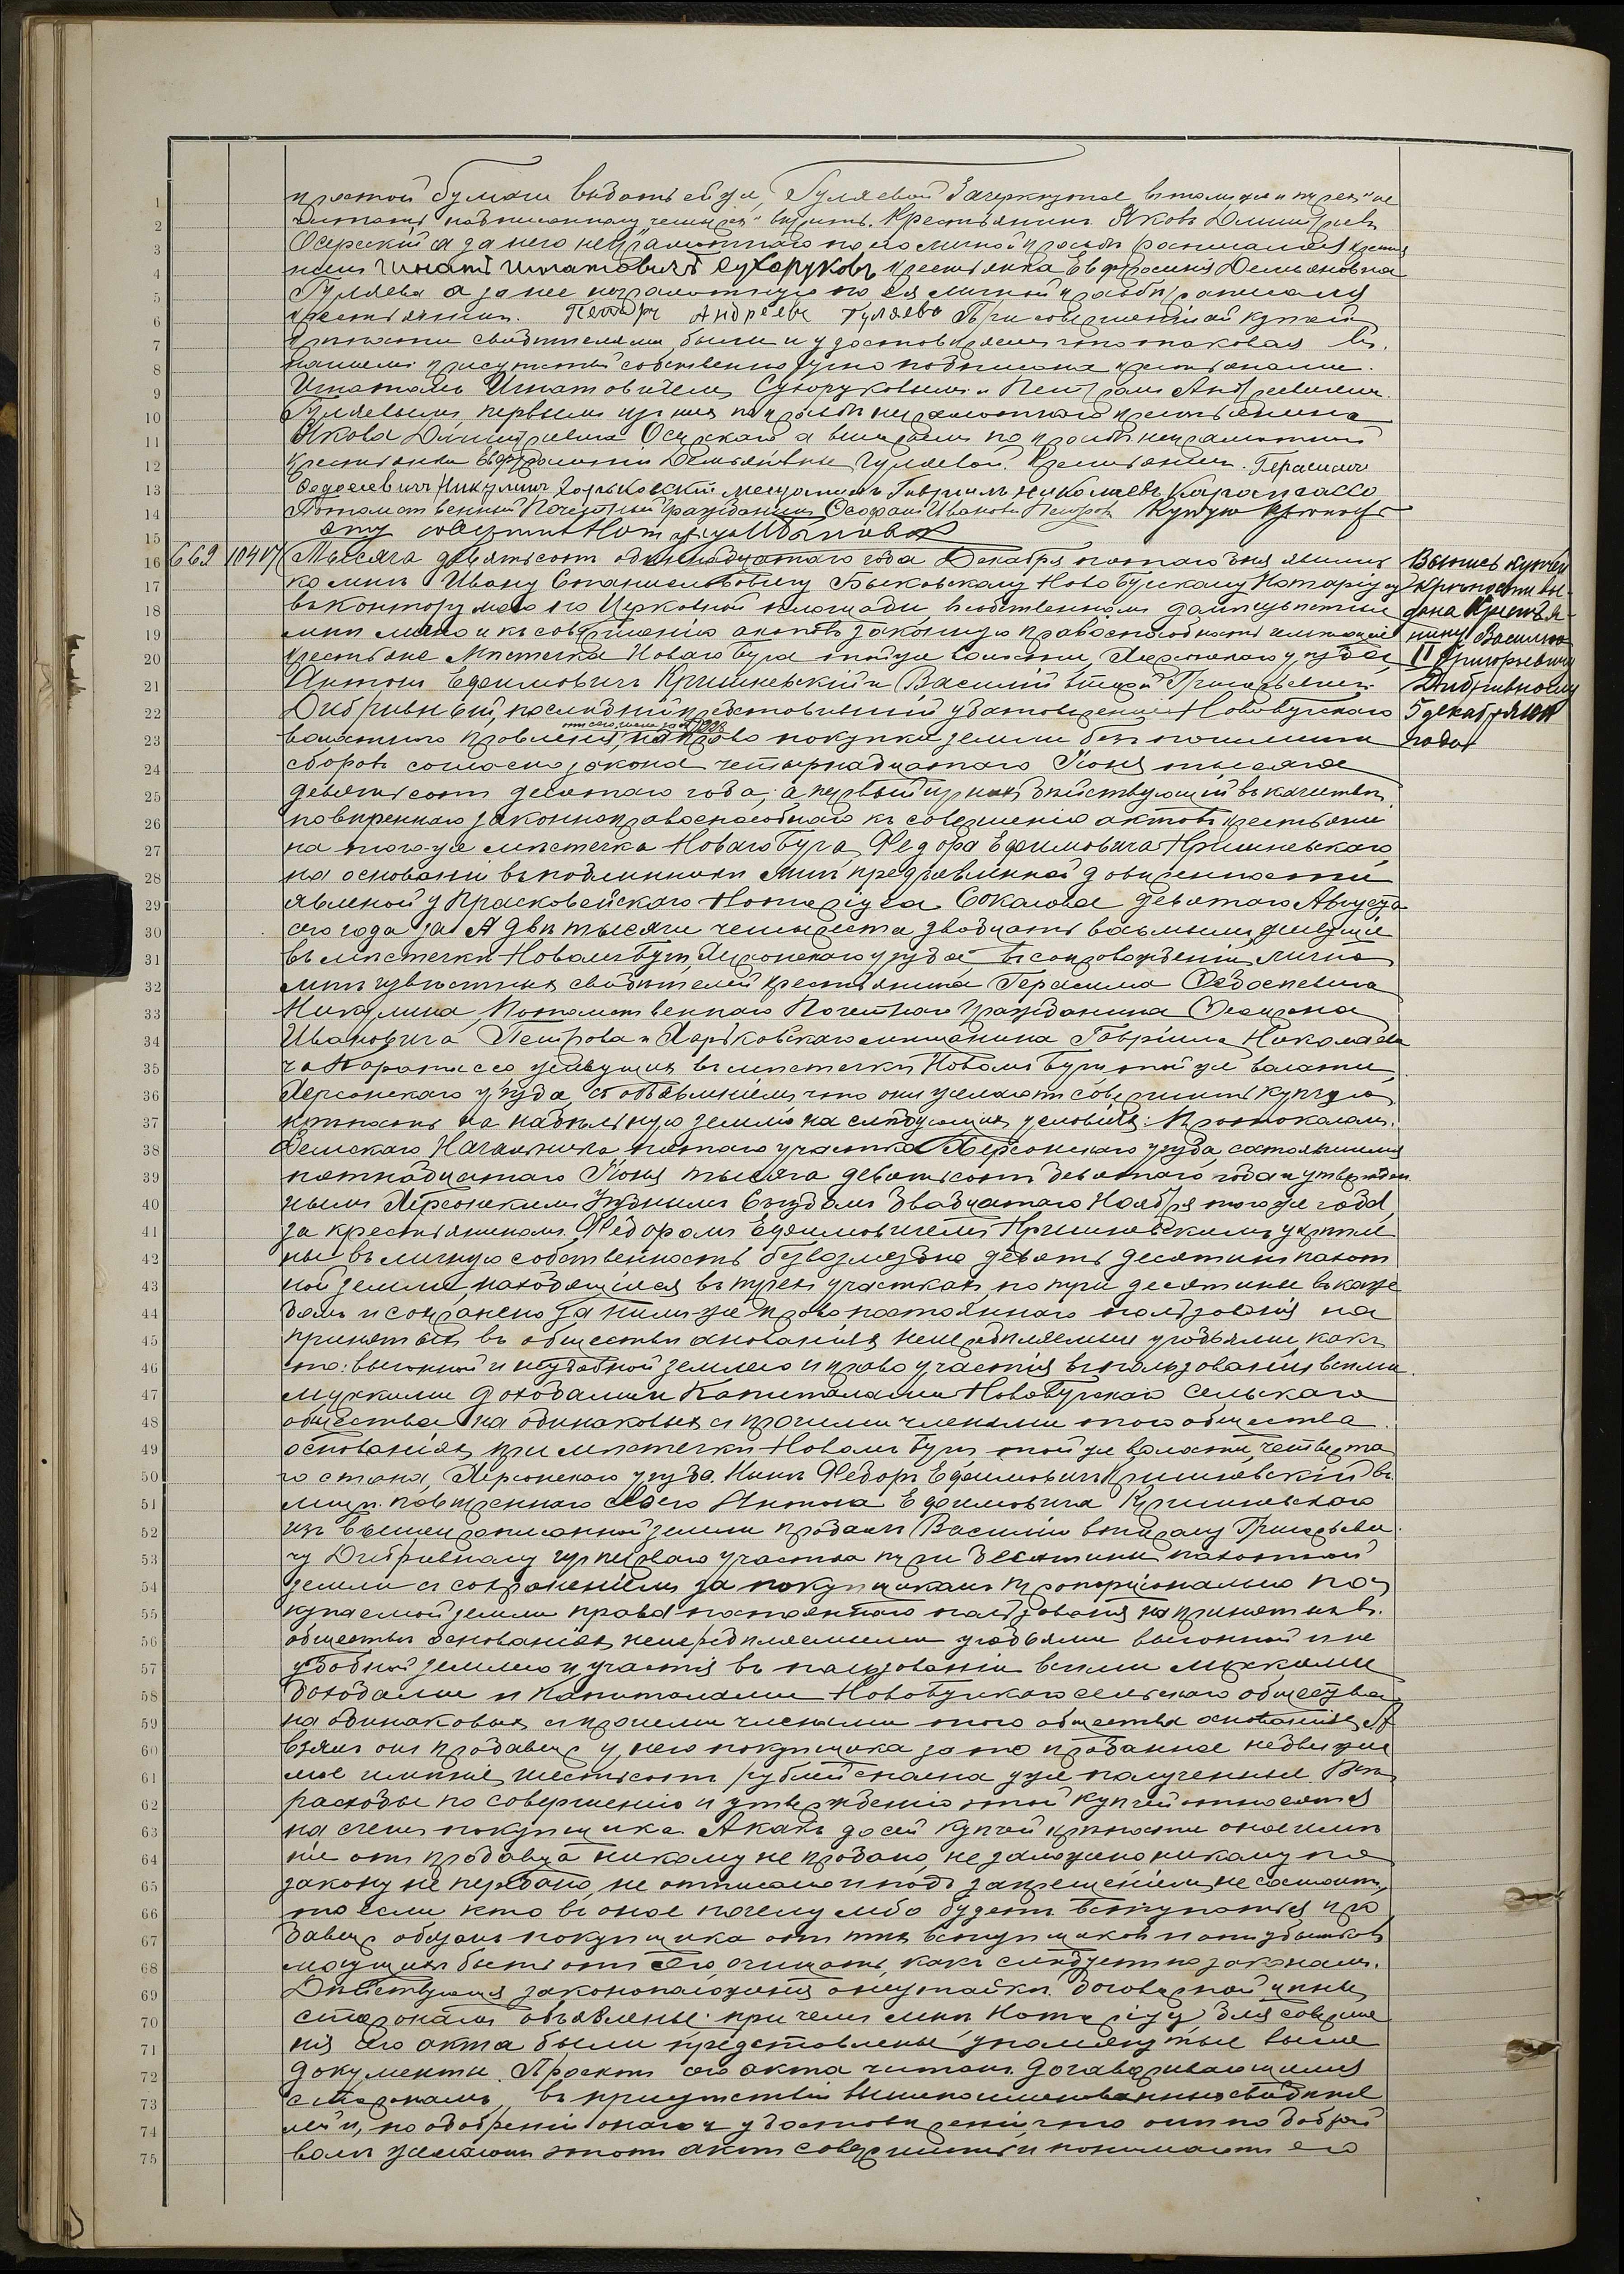 простой бумаги выдать ей-же, Гуляевой. Зачеркнутое " и трех" не
читать, надписанному "четырех" верить. Крестьянинъ Яковъ Дмитріевъ
Осерскій а за него неграмотнаго по его личной просьбѣ росписался крестья
нинъ Игнатъ Игнатовичъ Сухоруковъ, крестьянка Евфросинія Демьяновна
Гуляева а за нее неграмотную по ея личной просьбѣ росписался
крестьянинъ Петръ Андреевъ Гуляевъ При совершеніи сей купчей
крѣпости свидѣтелями были и удостовѣряемъ что таковая въ
нашемъ присутствіи собственноручно подписана крестьянами
Игнатомъ Игнатовичемъ Сухоруковымъ и Петромъ Андреевичемъ
Гуляевымъ, первымъ изъ нихъ по просьбѣ неграмотнаго крестьянина
Якова Дмитріевича Осерскаго а вторымъ по просьбѣ неграмотной
крестьянки Евфросиніи Демьяновны Гуляевой. Крестьянинъ Герасимъ
Федосеевичъ Никулинъ, Харьковскій мещанинъ Гавріилъ Николаевъ Карапассо
Потомственный Почетный Гражданинъ Феофанъ Ивановъ Петровъ Купчую крѣпость
эту совершилъ Нотаріусъ Ив Быковскій
669 10407 Тысяча девятьсотъ одиннадцатаго года Декабря пятаго дня явились
ко мнѣ Ивану Станиславовичу Быковскому Ново Бугскому Нотаріусу
въ контору мою по Церковной площади, въ собственномъ домѣ извѣстные
мнѣ лично и къ совершенію актовъ законную правоспособность имѣющіе
крестьяне Мѣстечка Новаго Буга той-же волости, Херсонскаго уѣзда,
Антонъ Ефимовичъ Кришневскій и Василій второй Григорьевичъ
Дибривный, послѣдній представившій удостовѣреніе Ново Бугскаго
волостного правленія отъ сего числа за № на право покупки земли безъ пошлинъ
сборовъ согласно закона четырнадцатаго Іюня тысяча
девятьсотъ десятаго года; а первый изъ нихъ дѣйствующій въ качествѣ
повѣреннаго законноправоспособнаго къ совершенію актовъ крестьяни
на того-же мѣстечка Новаго Буга, Федора Ефимовича Кришневскаго,
на основаніи въ подлинникѣ мнѣ предъявленной довѣренности
явленой у Прасковейскаго Нотаріуса Соколова девятаго Августа
сего года за № двѣ тысячи четыреста двадцать восьмымъ, живущіе
въ мѣстечкѣ Новомъ Бугѣ, Херсонскаго уѣзда, въ сопровожденіи лично
мнѣ извѣстныхъ свидѣтелей крестьянина Герасима Федосеевича
Никулина, Потомственнаго Почетнаго Гражданина Феофана
Ивановича Петрова и Харьковскаго мѣщанина Гавріила Николаеви
ча Карапассо живущихъ въ мѣстечкѣ Новомъ Бугѣ той-же волости,
Херсонскаго уѣзда, съ объявленіемъ, что они желаютъ совершить купчую
крѣпость на надѣльную землю на слѣдующихъ условіяхъ: Протоколомъ
Земскаго Начальника пятаго участка Херсонскаго уѣзда, состоявшимся
пятнадцатаго Іюня тысяча девятьсотъ девятаго года и утвержден
нымъ Херсонскимъ Уѣзднымъ Съѣздомъ двадцатаго Ноября того-же года,
за крестьяниномъ Федоромъ Ефимовичемъ Кришневскимъ укрѣпле
ны въ личную собственность безвозмездно девять десятинъ пахот
ной земли, находящіяся въ трехъ участкахъ, по три десятины въ каж
домъ и сохранено за нимъ-же право постояннаго пользованія на
принятыхъ въ обществѣ основаніяхъ непередѣляемыми угодьями, какъ
то: выгонной и неудобной землею и право участія въ пользованіи всѣми
мірскими доходами и Капиталами Новобугскаго сельскаго
общества на одинаковыхъ съ прочими членами этого общества
основаніяхъ, при мѣстечкѣ Новомъ Бугѣ, той-же волости, четверта
го стана, Херсонскаго уѣзда. Нынѣ Федоръ Ефимовичъ Кришневскій въ
лицѣ повѣреннаго своего Антона Ефимовича Кришневскаго
изъ вышеописанной земли продалъ Василію второму Григорьеви
чу Дибривному изъ перваго участка три десятины пахотной
земли съ сохраненіемъ за покупщикомъ пропорціонально по
купаемой земли права постояннаго пользованія на принятыхъ въ
обществѣ основаніяхъ непередѣляемыми угодьями выгонной и не
удобной землею и участія въ пользованіи всѣми мірскими
доходами и Капиталами Новобугскаго сельскаго общества
на одинаковыхъ съ прочими членами этого общества основаніяхъ. А
взялъ онъ продавецъ у него покупщика за то проданное недвижи
мое имѣніе, шестьсотъ рублей сполна уже полученные. Всѣ
расходы по совершенію и утвержденію этой купчей относятся
на счетъ покупщика. А какъ до сей купчей крѣпости оное имѣ
ніе отъ продавца никому не продано, не заложено, никому по
закону не передано, не отписано и подъ запрещеніемъ не состоитъ,
то если кто въ оное почему либо будетъ вступаться, про
давецъ обязанъ покупщика отъ тѣхъ вступщиковъ и отъ убытковъ
могущихъ быть отъ сего, очищать, какъ слѣдуетъ по законамъ.
Дѣйствующія законоположенія о неутайкѣ договорной цѣны
сторонамъ объявлены: при чемъ мнѣ Нотаріусу для соверше
нія сего акта были представлены упомянутые выше
документы. Проектъ сего акта читанъ договаривающимся
сторонамъ, въ присутствіи вышепоименованныхъ свидѣте
лей и, по одобреніи онаго и удостовѣреніи, что они по доброй
волѣ желаютъ этотъ актъ совершить и понимаютъ его
Выпись купчей
крѣпости вы-
дана Крестья-
нину Василію
II Григорьевичу
Дибривному
5 декабря 1911
года
1
2
3
4
5
6
7
8
9
10
11
12
13
14
15
16
17
18
19
20
21
22
23
24
25
26
27
28
29
30
31
32
33
34
35
36
37
38
39
40
41
42
43
44
45
46
47
48
49
50
51
52
53
54
55
56
57
58
59
60
61
62
63
64
65
66
67
68
69
70
71
72
73
74
75